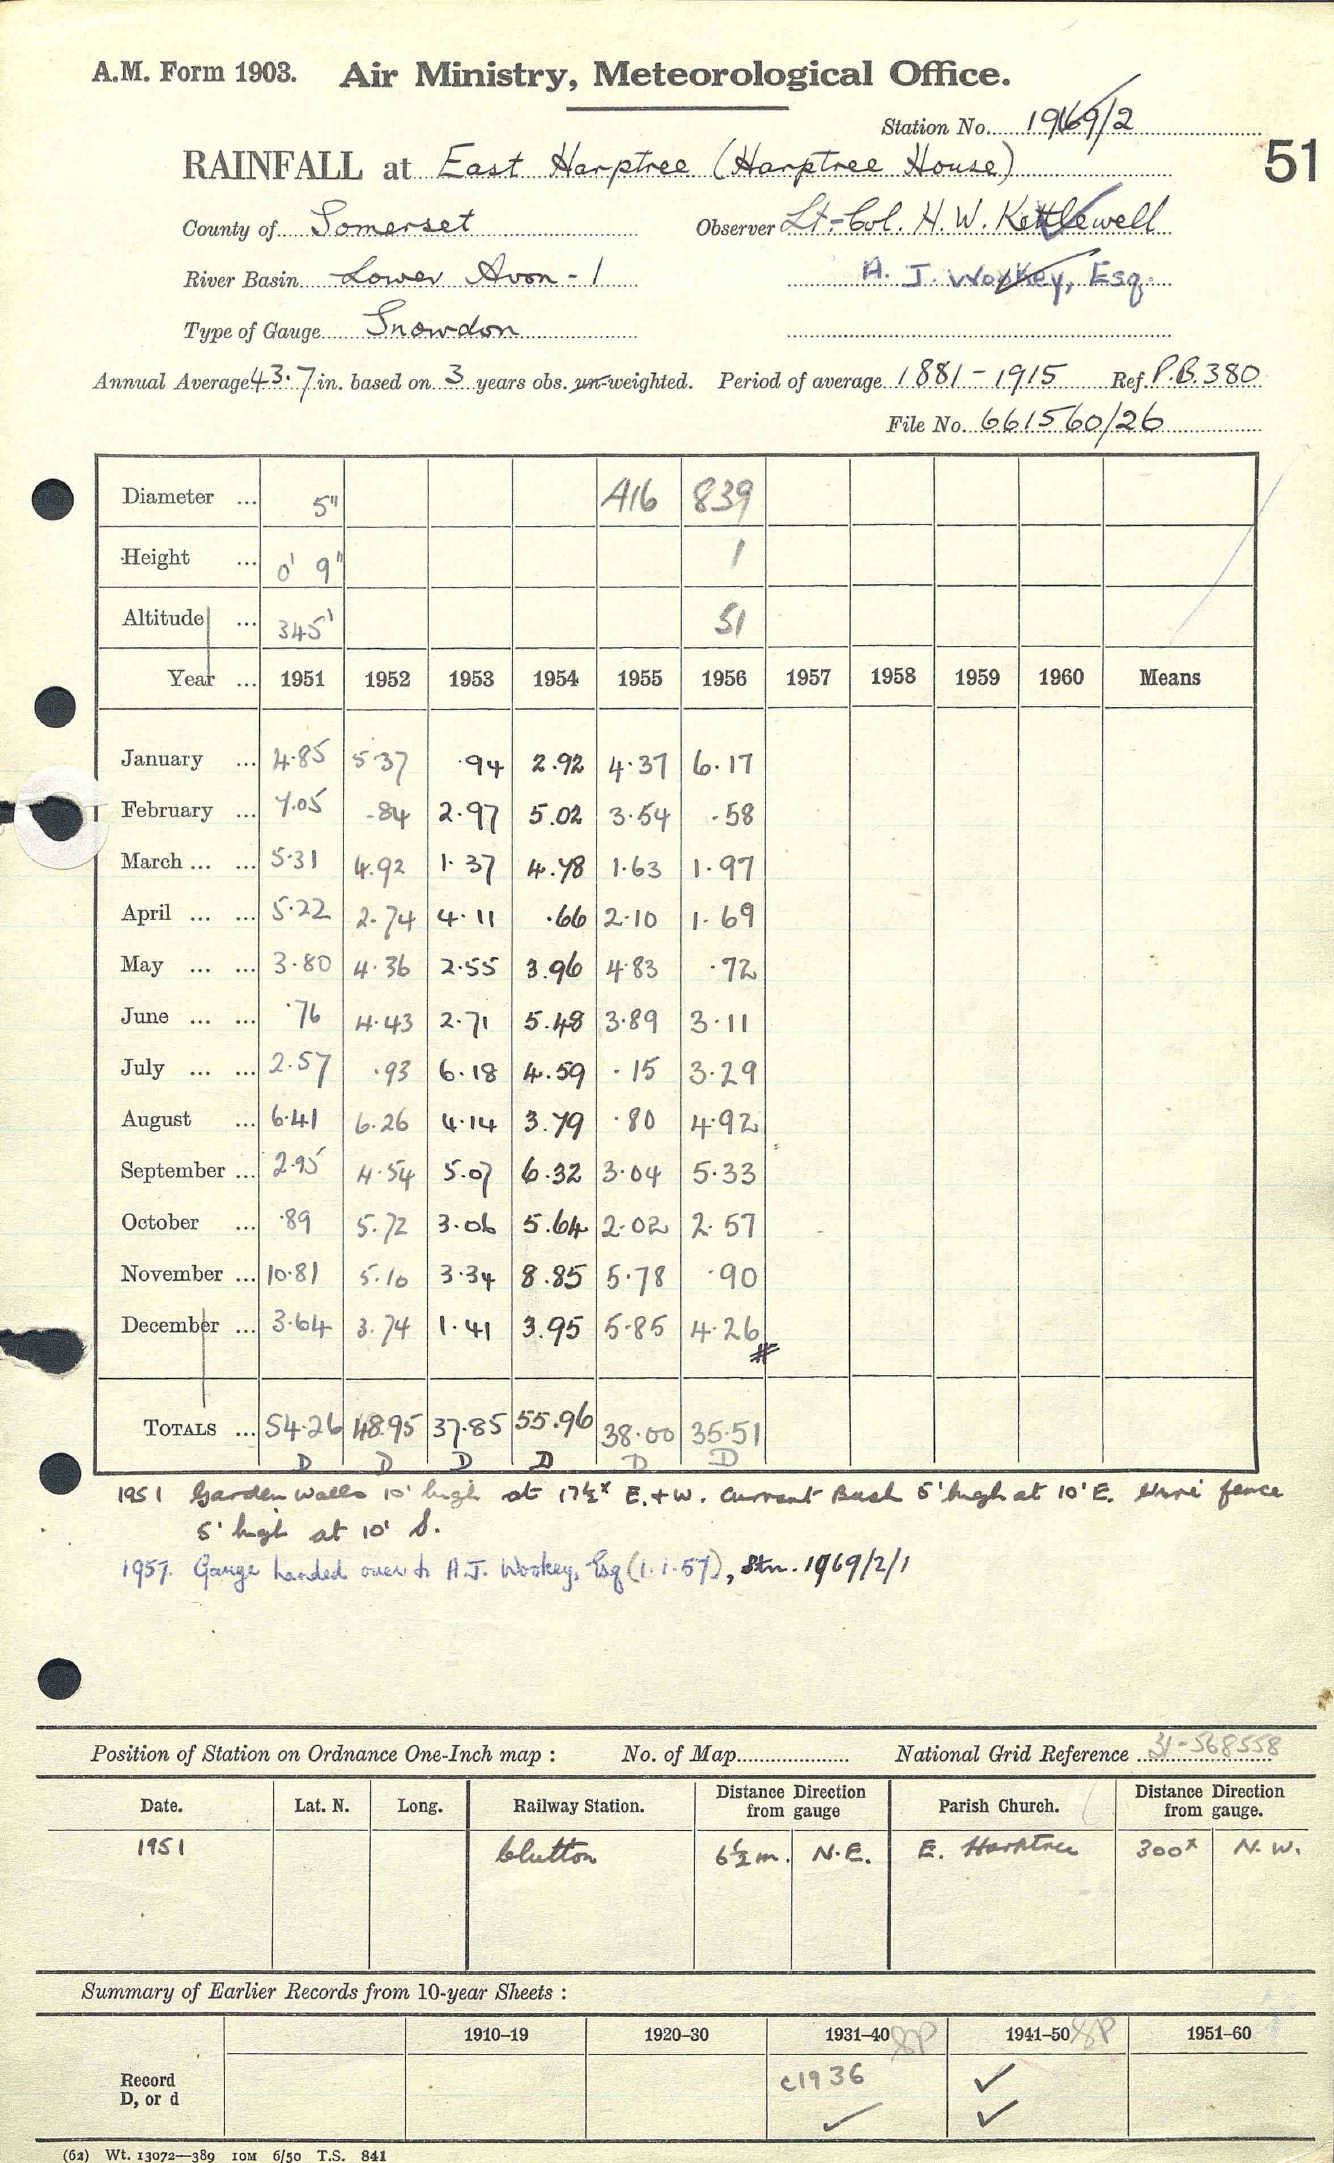 A.M. Form 1903. Air Ministry, Meteorological Office.
Station No. 1969/2
RAINFALL at East Harptree (Harptree House) 51
County of Somerset Observer Lt.-Col. H. W. Kettlewell
River Basin Lower Avon - 1 A. J. Wookey, Esq.
Type of Gauge Snowdon
Annual Average 43.7 in. based on 3 years obs. un-weighted. Period of average 1881-1915 Ref. P.B.380
File No. 661560/26
Diameter ... 5" 416 839
Height ... 0' 9" 1
Altitude ... 345' 51
Year ... 1951 1952 1953 1954 1955 1956 1957 1958 1959 1960 Means
January ... 4.85 5.37 .94 2.92 4.37 6.17
February ... 7.05 .84 2.97 5.02 3.54 .58
March ... ... 5.31 4.92 1.37 4.78 1.63 1.97
April ... ... 5.22 2.74 4.11 .66 2.10 1.69
May ... ... 3.80 4.36 2.55 3.96 4.83 .72
June ... ... .76 4.43 2.71 5.48 3.89 3.11
July ... ... 2.57 .93 6.18 4.59 .15 3.29
August ... 6.41 6.26 4.14 3.79 .80 4.92
September ... 2.95 4.54 5.07 6.32 3.04 5.33
October ... .89 5.72 3.06 5.64 2.02 2.57
November ... 10.81 5.10 3.34 8.85 5.78 .90
December ... 3.64 3.74 1.41 3.95 5.85 4.26
#
TOTALS ... 54.26 48.95 37.85 55.96 38.00 35.51
D D D D D D
1951 Garden walls 10' high at 17½x E.+W. Currant Bush 5' high at 10' E. Wire fence
5' high at 10' S.
1957. Gauge handed over to A.J. Wookey, Esq (1.1.57), Stn. 1969/2/1
Position of Station on Ordnance One-Inch map : No. of Map National Grid Reference 31-568558
Date. Lat. N. Long. Railway Station. Distance Direction from gauge Parish Church. Distance Direction from gauge.
1951 Clutton 6½ m. N.E. E. Harptree 300x N.W.
Summary of Earlier Records from 10-year Sheets :
1910-19 1920-30 1931-40 SP 1941-50 SP 1951-60
Record c1936 ✓
D, or d ✓ ✓
(62) Wt. 13072—389 10M 6/50 T.S. 841